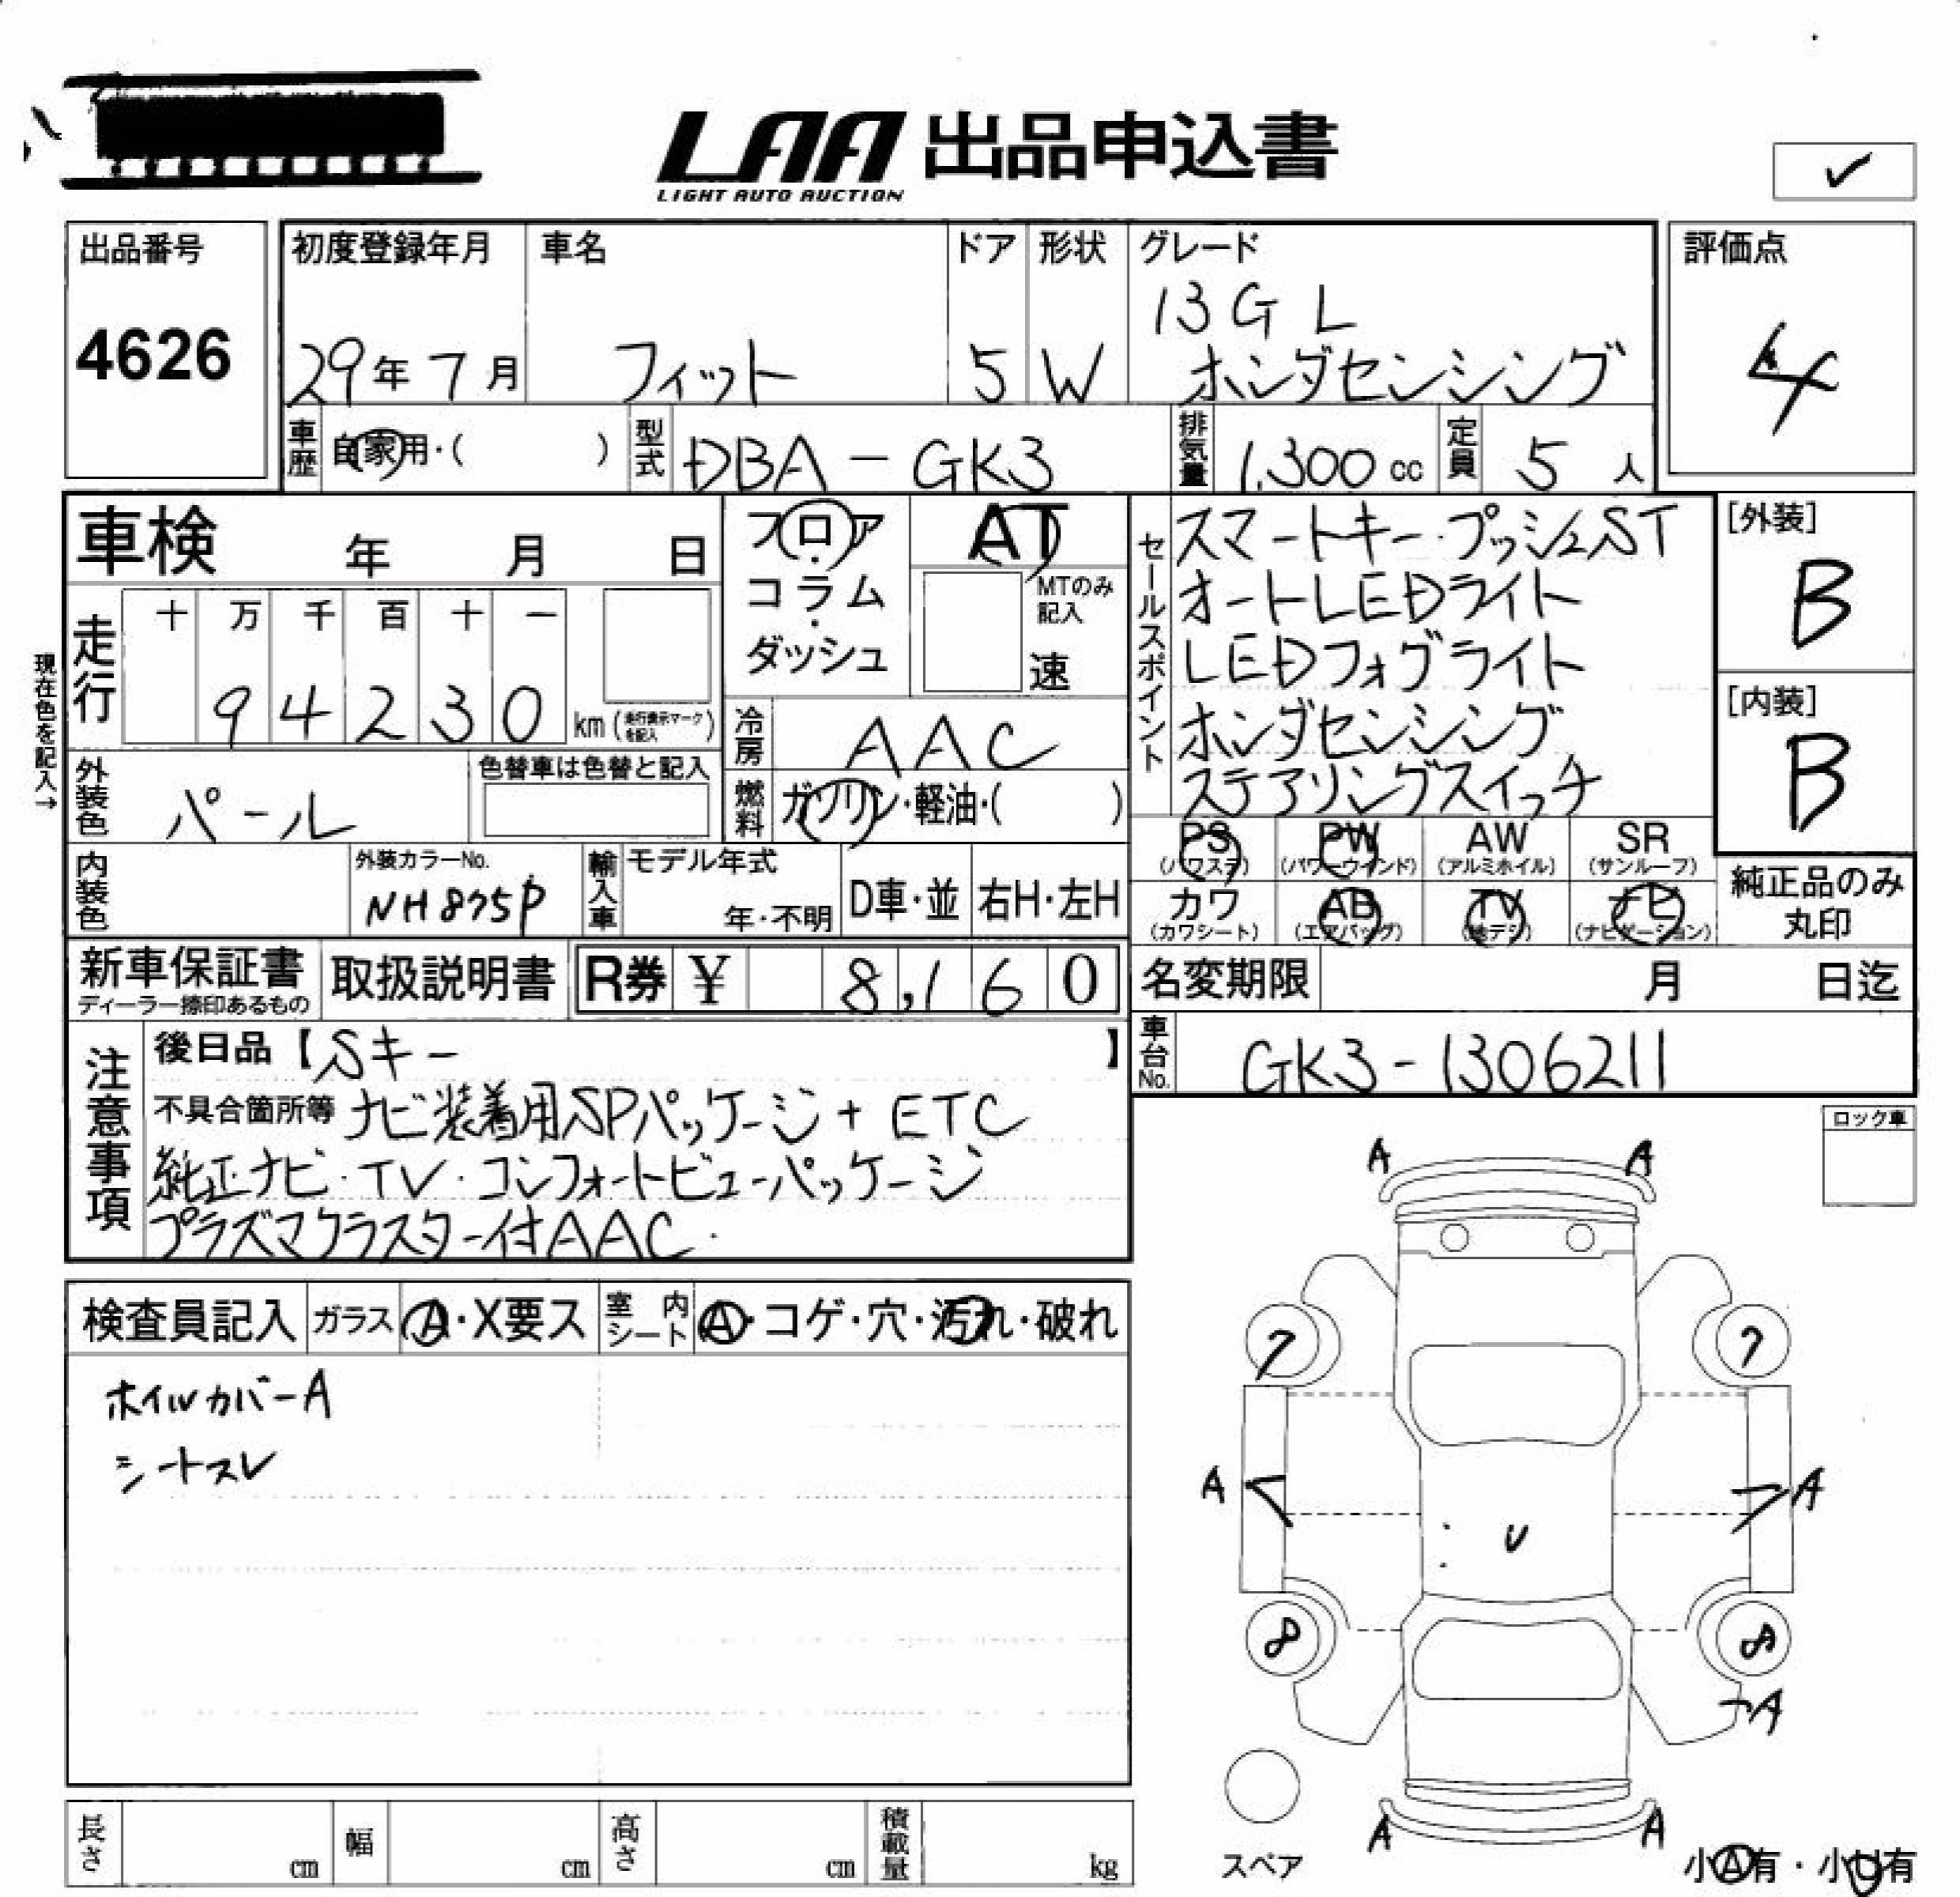 LAA 出品申込書
LIGHT AUTO AUCTION
✓
出品番号
4626
初度登録年月
29年7月
車名
フィット
ドア
5
形状
W
グレード
13G L
ホンダセンシング
評価点
4
車歴
自家用・( )
型式
DBA-GK3
排気量
1,300 cc
定員
5 人
車検 年 月 日
フロア・
コラム・
ダッシュ
AT
MTのみ
記入
速
セールスポイント
スマートキー・プッシュST
オートLEDライト
LEDフォグライト
ホンダセンシング
ステアリングスイッチ
[外装]
B
[内装]
B
現在色を記入→
走行
十 万 千 百 十 一
9 4 2 3 0 km (走行表示マークを記入)
冷房
AAC
外装色
パール
色替車は色替と記入
燃料
ガソリン・軽油・( )
PS AW SR
(パワステ) PW (パワーウインド) (アルミホイル) (サンルーフ)
カワ AB TV ナビ
(カワシート) (エアバッグ) (地デジ) (ナビゲーション)
純正品のみ
丸印
内装色
外装カラーNo.
NH875P
輸入車
モデル年式
年・不明
D車・並
右H・左H
新車保証書
ディーラー捺印あるもの
取扱説明書
R券 ¥ 8,160
名変期限 月 日迄
車台No.
GK3-1306211
注意事項
後日品【Sキー 】
不具合箇所等 ナビ装着用SPパッケージ+ETC
純正ナビ・TV・コンフォートビューパッケージ
プラズマクラスター付AAC.
ロック車
検査員記入
ガラス
A・X要ス
室内シート
A・コゲ・穴・汚れ・破れ
ホイルカバーA
シートスレ
A A
7 7
A A
U
8 8
A
A A
スペア
小A有・小U有
長さ cm
幅 cm
高さ cm
積載量 kg